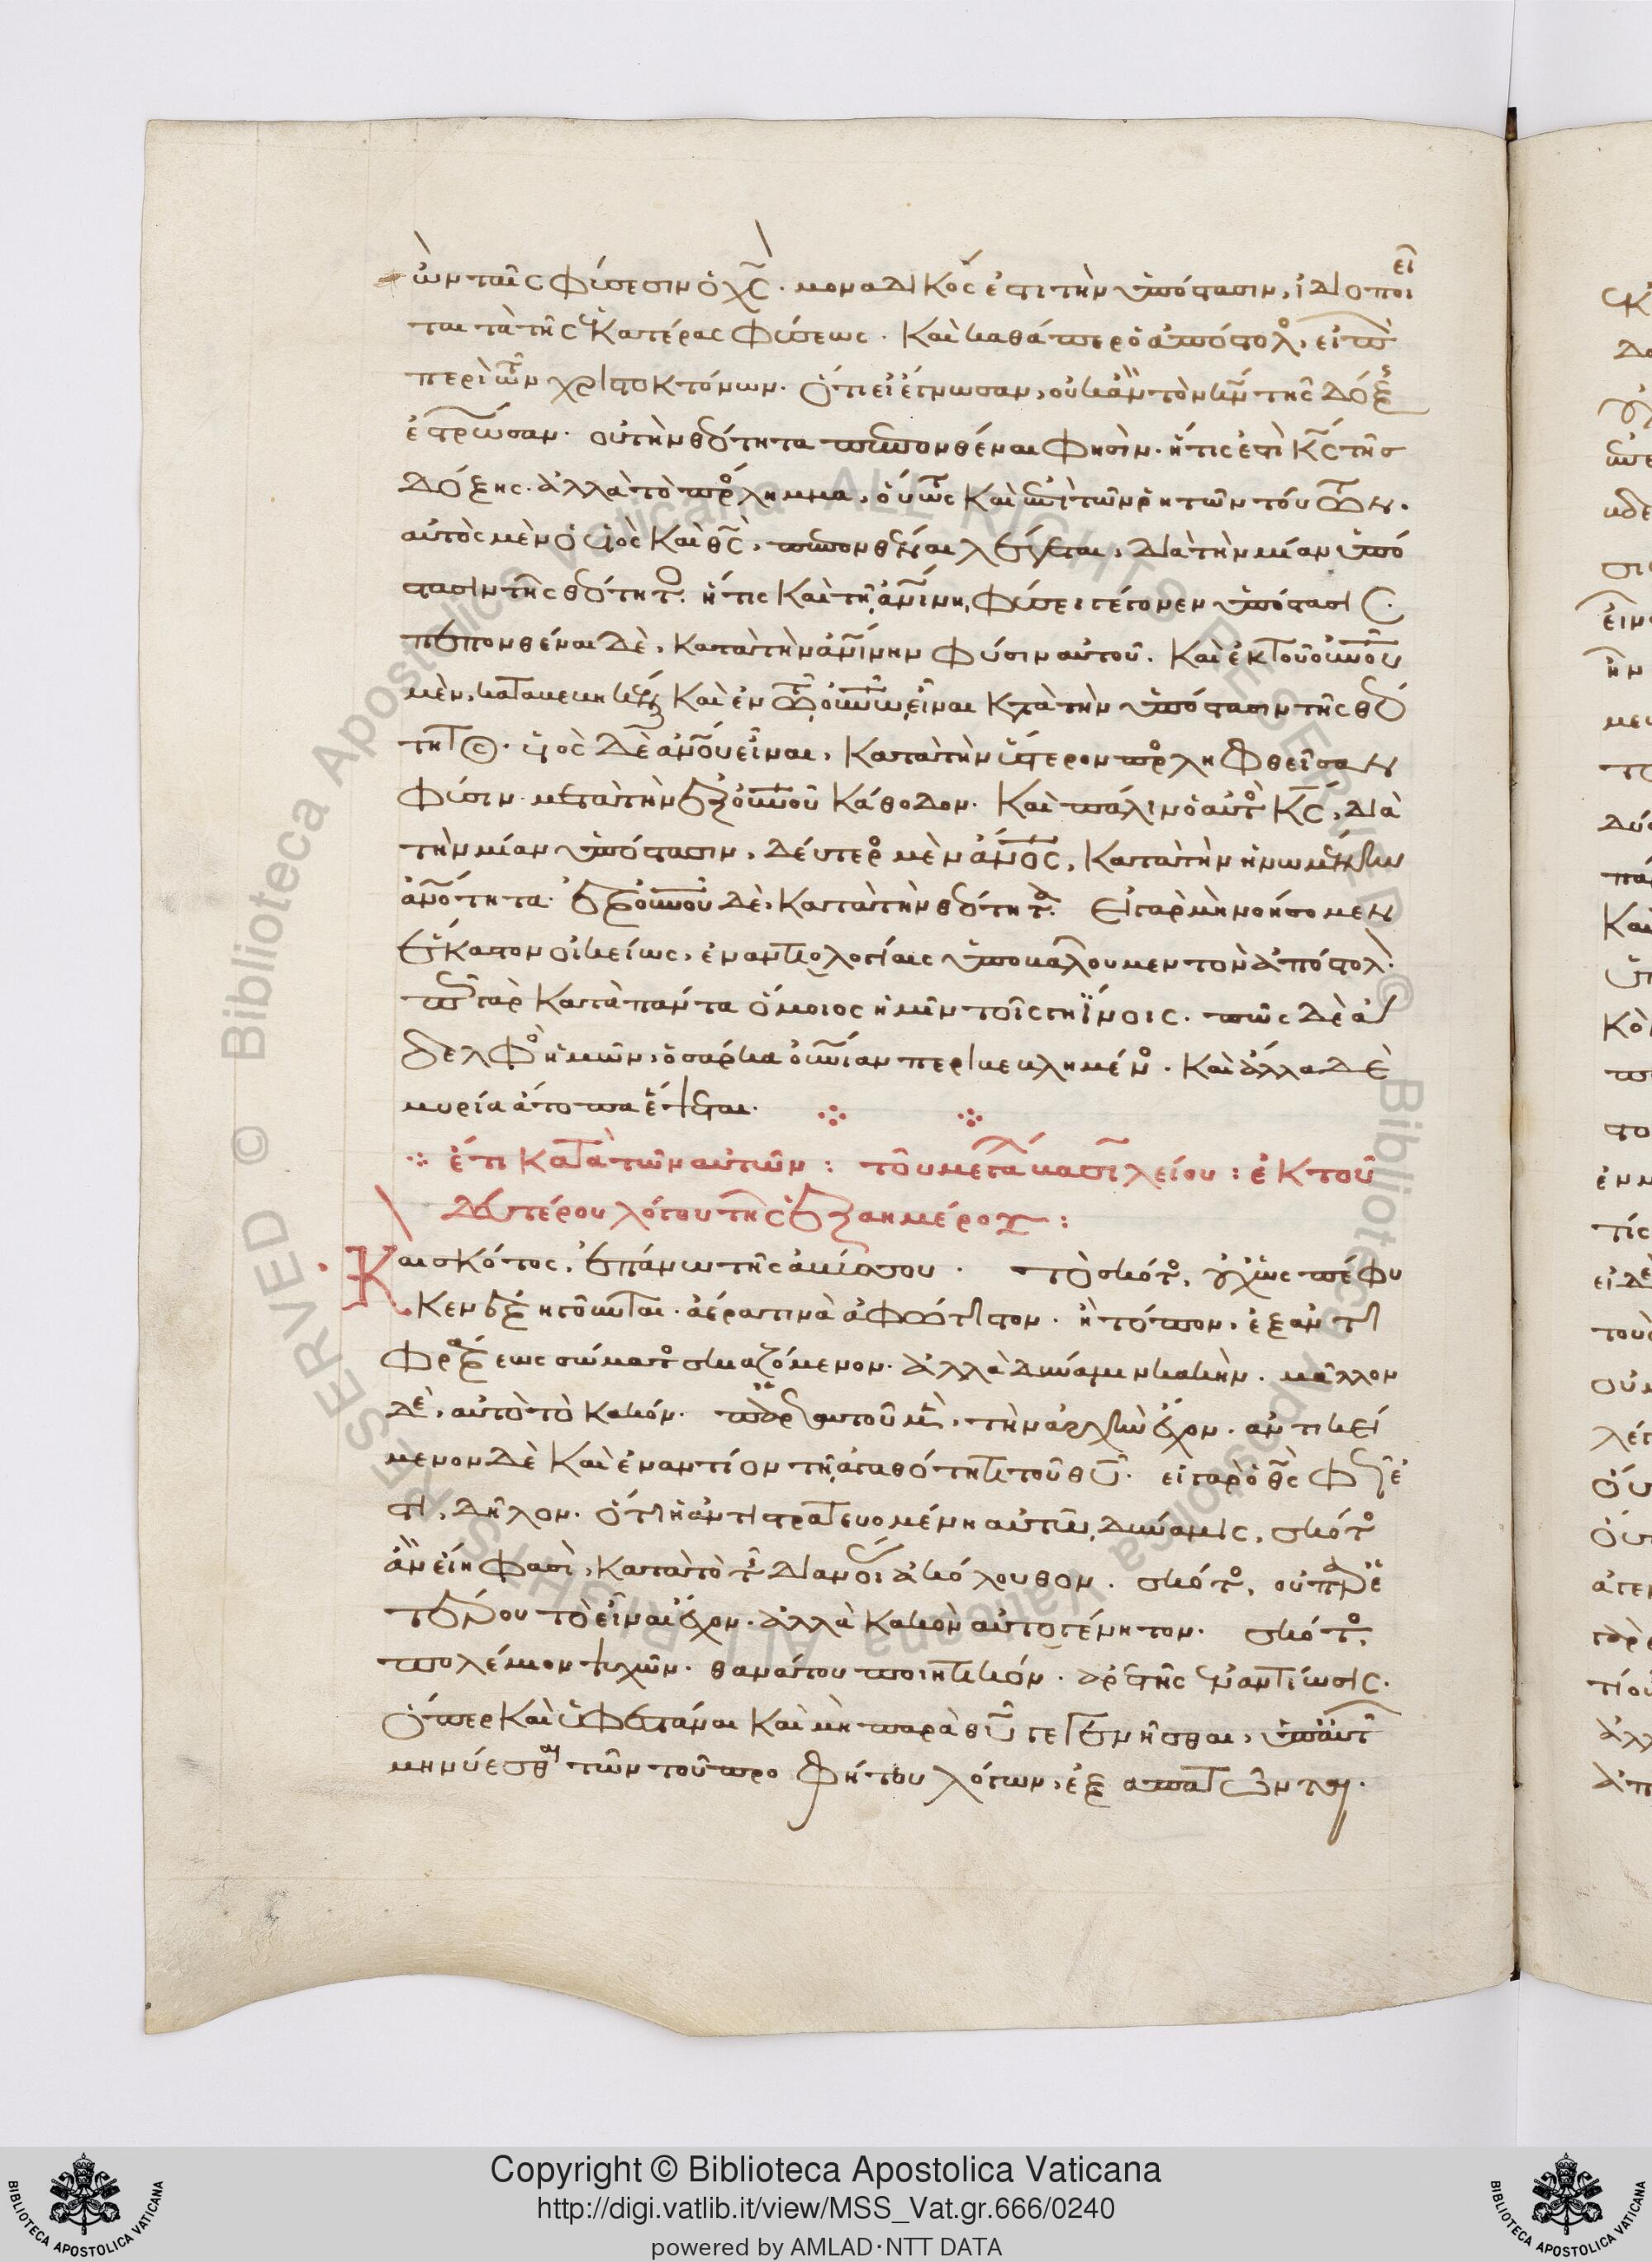 ὢν ταῖς φύσεσιν ὁ χς̃. μοναδικός ἐστι τὴν ὑπόστασιν, ἰδιοποιεῖ
ται τὰ τῆς ἑκατέρας φύσεως. καὶ καθάπερ ὁ ἀπόστολ,
περὶ τῶν χριστοκτόνων. ὅτι εἰ ἔγνωσαν, οὐκ ἂν τὸν κν̃ τῆς δόξης
ἐστρωσαν. οὐ τὴν θεότητα πεπονθέναι φησὶν. ἥτις ἐστὶ κς̃ τῆς
δόξης. ἀλλὰ τὸ πρόσλημμα, οὕτως καὶ ἐπὶ τῶν ῥητῶν τούτων.
αὐτὸς μὲν ὁ υἱὸς καὶ θς̃, πεπονθέναι λέγεται, διὰ τὴν μίαν ὑπό
στασιν τῆς θεότητος. ἥτις καὶ τῇ ἀνίνῃ φύσει γέγονεν ὑπόστασις.
πεπονθέναι δὲ, κατὰ τὴν ἀνίνην φύσιν αὐτοῦ. καὶ ἐκ τοῦ οὐνοῦ
μὲν, καὶ ἐν τῷ οὐνῷ εἶναι κατὰ τὴν ὑπόστασιν τῆς θεό
τητος. υἱὸς δὲ ἀνοῦ εἶναι, κατὰ τὴν ὕστερον προσληφθεῖσαν
φύσιν. μετὰ τὴν ἐξ οὐνοῦ κάθοδον. καὶ πάλιν ὁ αὐτὸς κς̃, διὰ
τὴν μίαν ὑπόστασιν, δεύτερος μὲν ἄνος, κατὰ τὴν ἡνωμένην
ἀνότητα. ἐξ οὐνοῦ δὲ, κατὰ τὴν θεότητα. εἰ γὰρ μὴ νοήσομεν
ἕκαστον οἰκείως, ἐναντιολογίαις ὑποβάλουμεν τὸν ἀπόστολ.
πῶς γὰρ κατὰ πάντα ὅμοιος ἡμῖν τοῖς γηΐνοις. πῶς δὲ ἀ
δελφὸς ἡμῶν, ὁ σάρκα οὐνίαν περικεκλημένος. καὶ ἄλλα δὲ
μυρία ἄτοπα ἕψεται.
ἔτι κατὰ τῶν αὐτῶν : τοῦ μεγάλου βασιλείου : ἐκ τοῦ
δευτέρου λόγου τῆς ἑξαημέρου :
Και σκότος, ἐπάνω τῆς ἀβύσσου. τὸ σκότος, οὐχ ὡς πέφυ
κεν ἐξηγοῦνται. ἀέρα τινὰ ἀφώτιστον. ἢ τόπον, ἐξ ἀντι
φράξεως σώματος σκιαζόμενον. ἀλλὰ δύναμιν κακὴν. μᾶλλον
δὲ, αὐτὸ τὸ κακόν. παρ' ἑαυτοῦ μὲν, τὴν ἀρχὴν ἔχον. ἀντικεί
μενον δὲ καὶ ἐναντίον τῇ ἀγαθότητι τοῦ θῦ. εἰ γὰρ ὁ θς̃ φῶς ἐ
στι, δῆλον. ὅτι ἡ ἀντιστρατευομένη αὐτῷ δύναμις, σκότος
ἂν εἴη φασὶ, κατὰ τὸ τῆς διανοίας ἀκόλουθον. σκότος, οὐ παρ' ἑ
τέρου τὸ εἶναι ἔχον. ἀλλὰ κακὸν αὐτογένητον. σκότος,
πολέμιον ψυχῶν. θανάτου ποιητικόν. ἀρετῆς ἐναντίωσις.
ὅπερ καὶ ὑφεστάναι καὶ μὴ παρὰ θῦ γεγενῆσθαι, ὑπ' αὐτῶν
μηνύεσθαι τῶν τοῦ προφήτου λόγων, ἐξαπατῶνται.
Copyright © Biblioteca Apostolica Vaticana
http://digi.vatlib.it/view/MSS_Vat.gr.666/0240
powered by AMLAD·NTT DATA